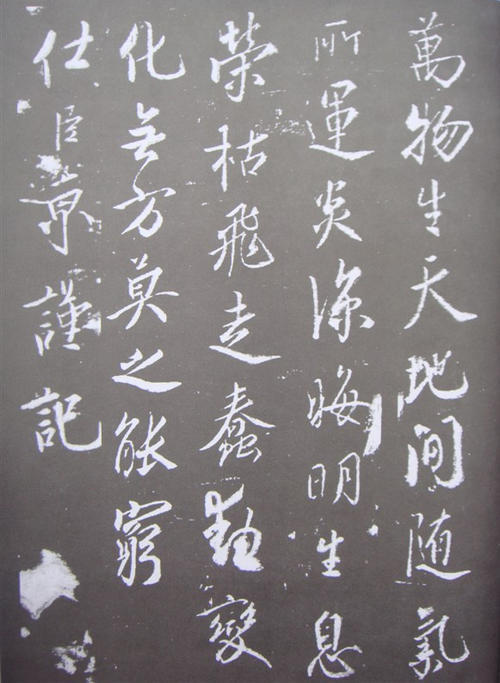 萬物生天地间随氣
所運炎涼晦明生息
榮枯飛走蠢動變
化無方莫之能窮
仕臣京謹記